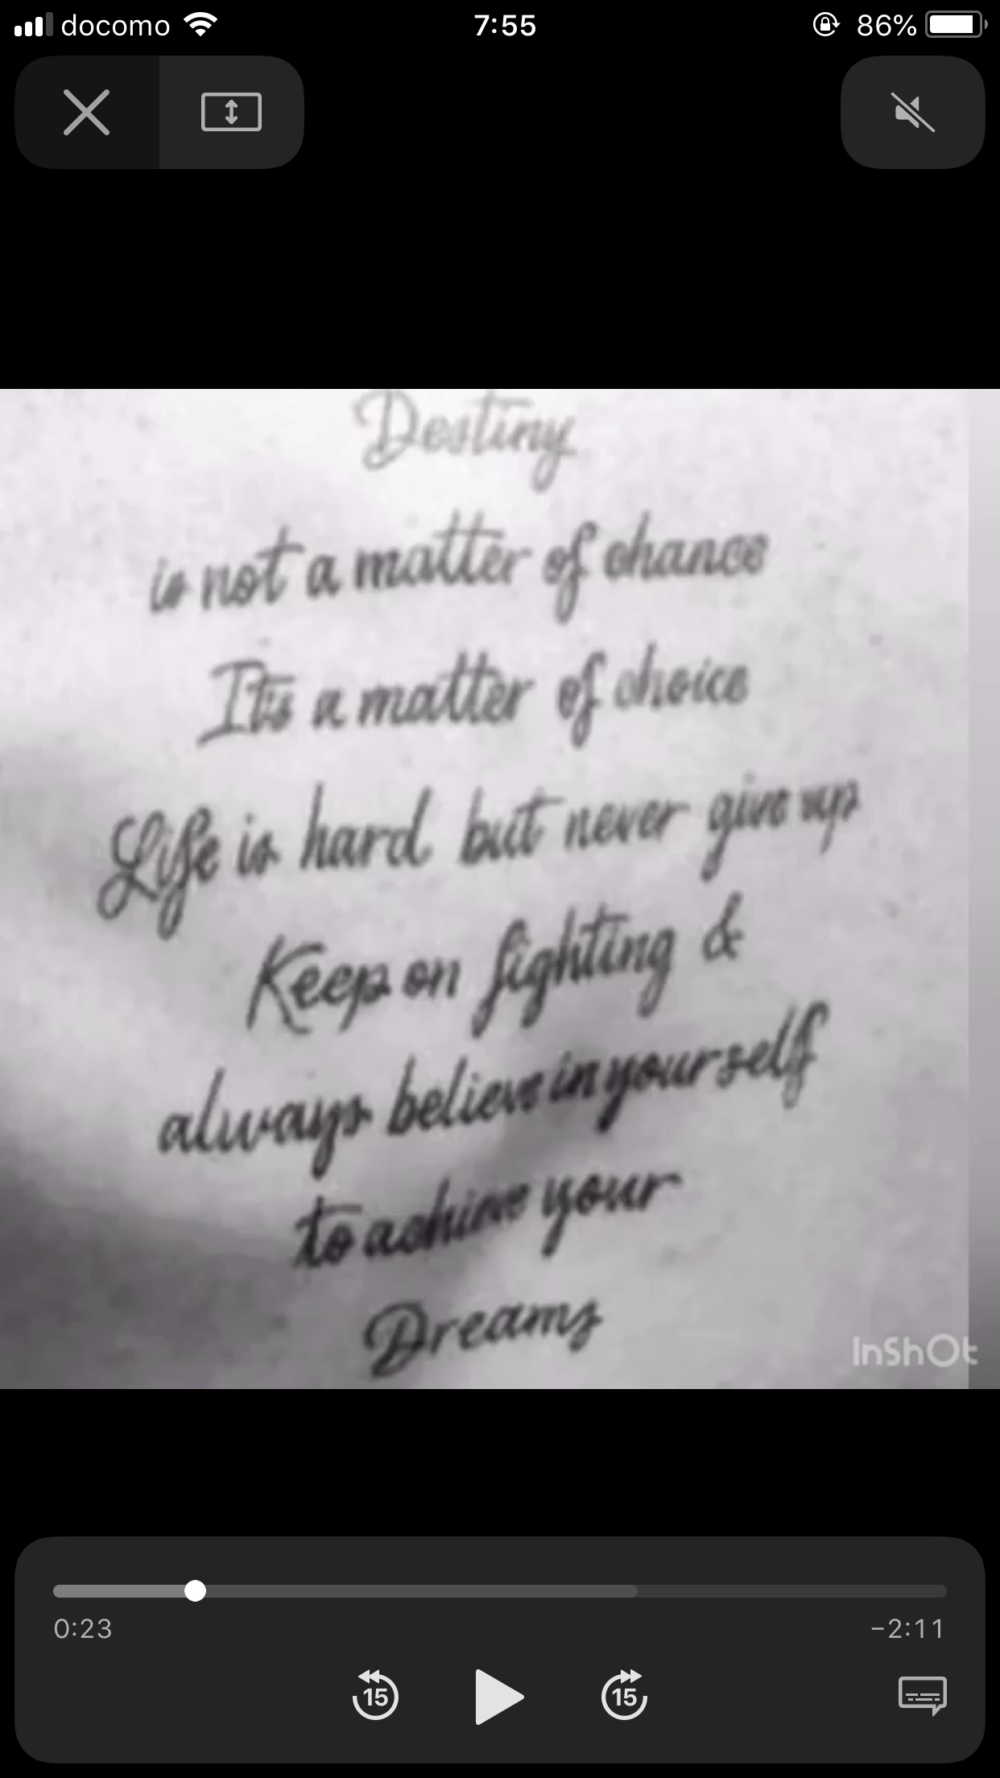 docomo 7:55 86%
Destiny
is not a matter of chance
It's a matter of choice
Life is hard but never give up
Keep on fighting &
always believe in yourself
to achive your
Dreams
InShOt
0:23 −2:11
15 15